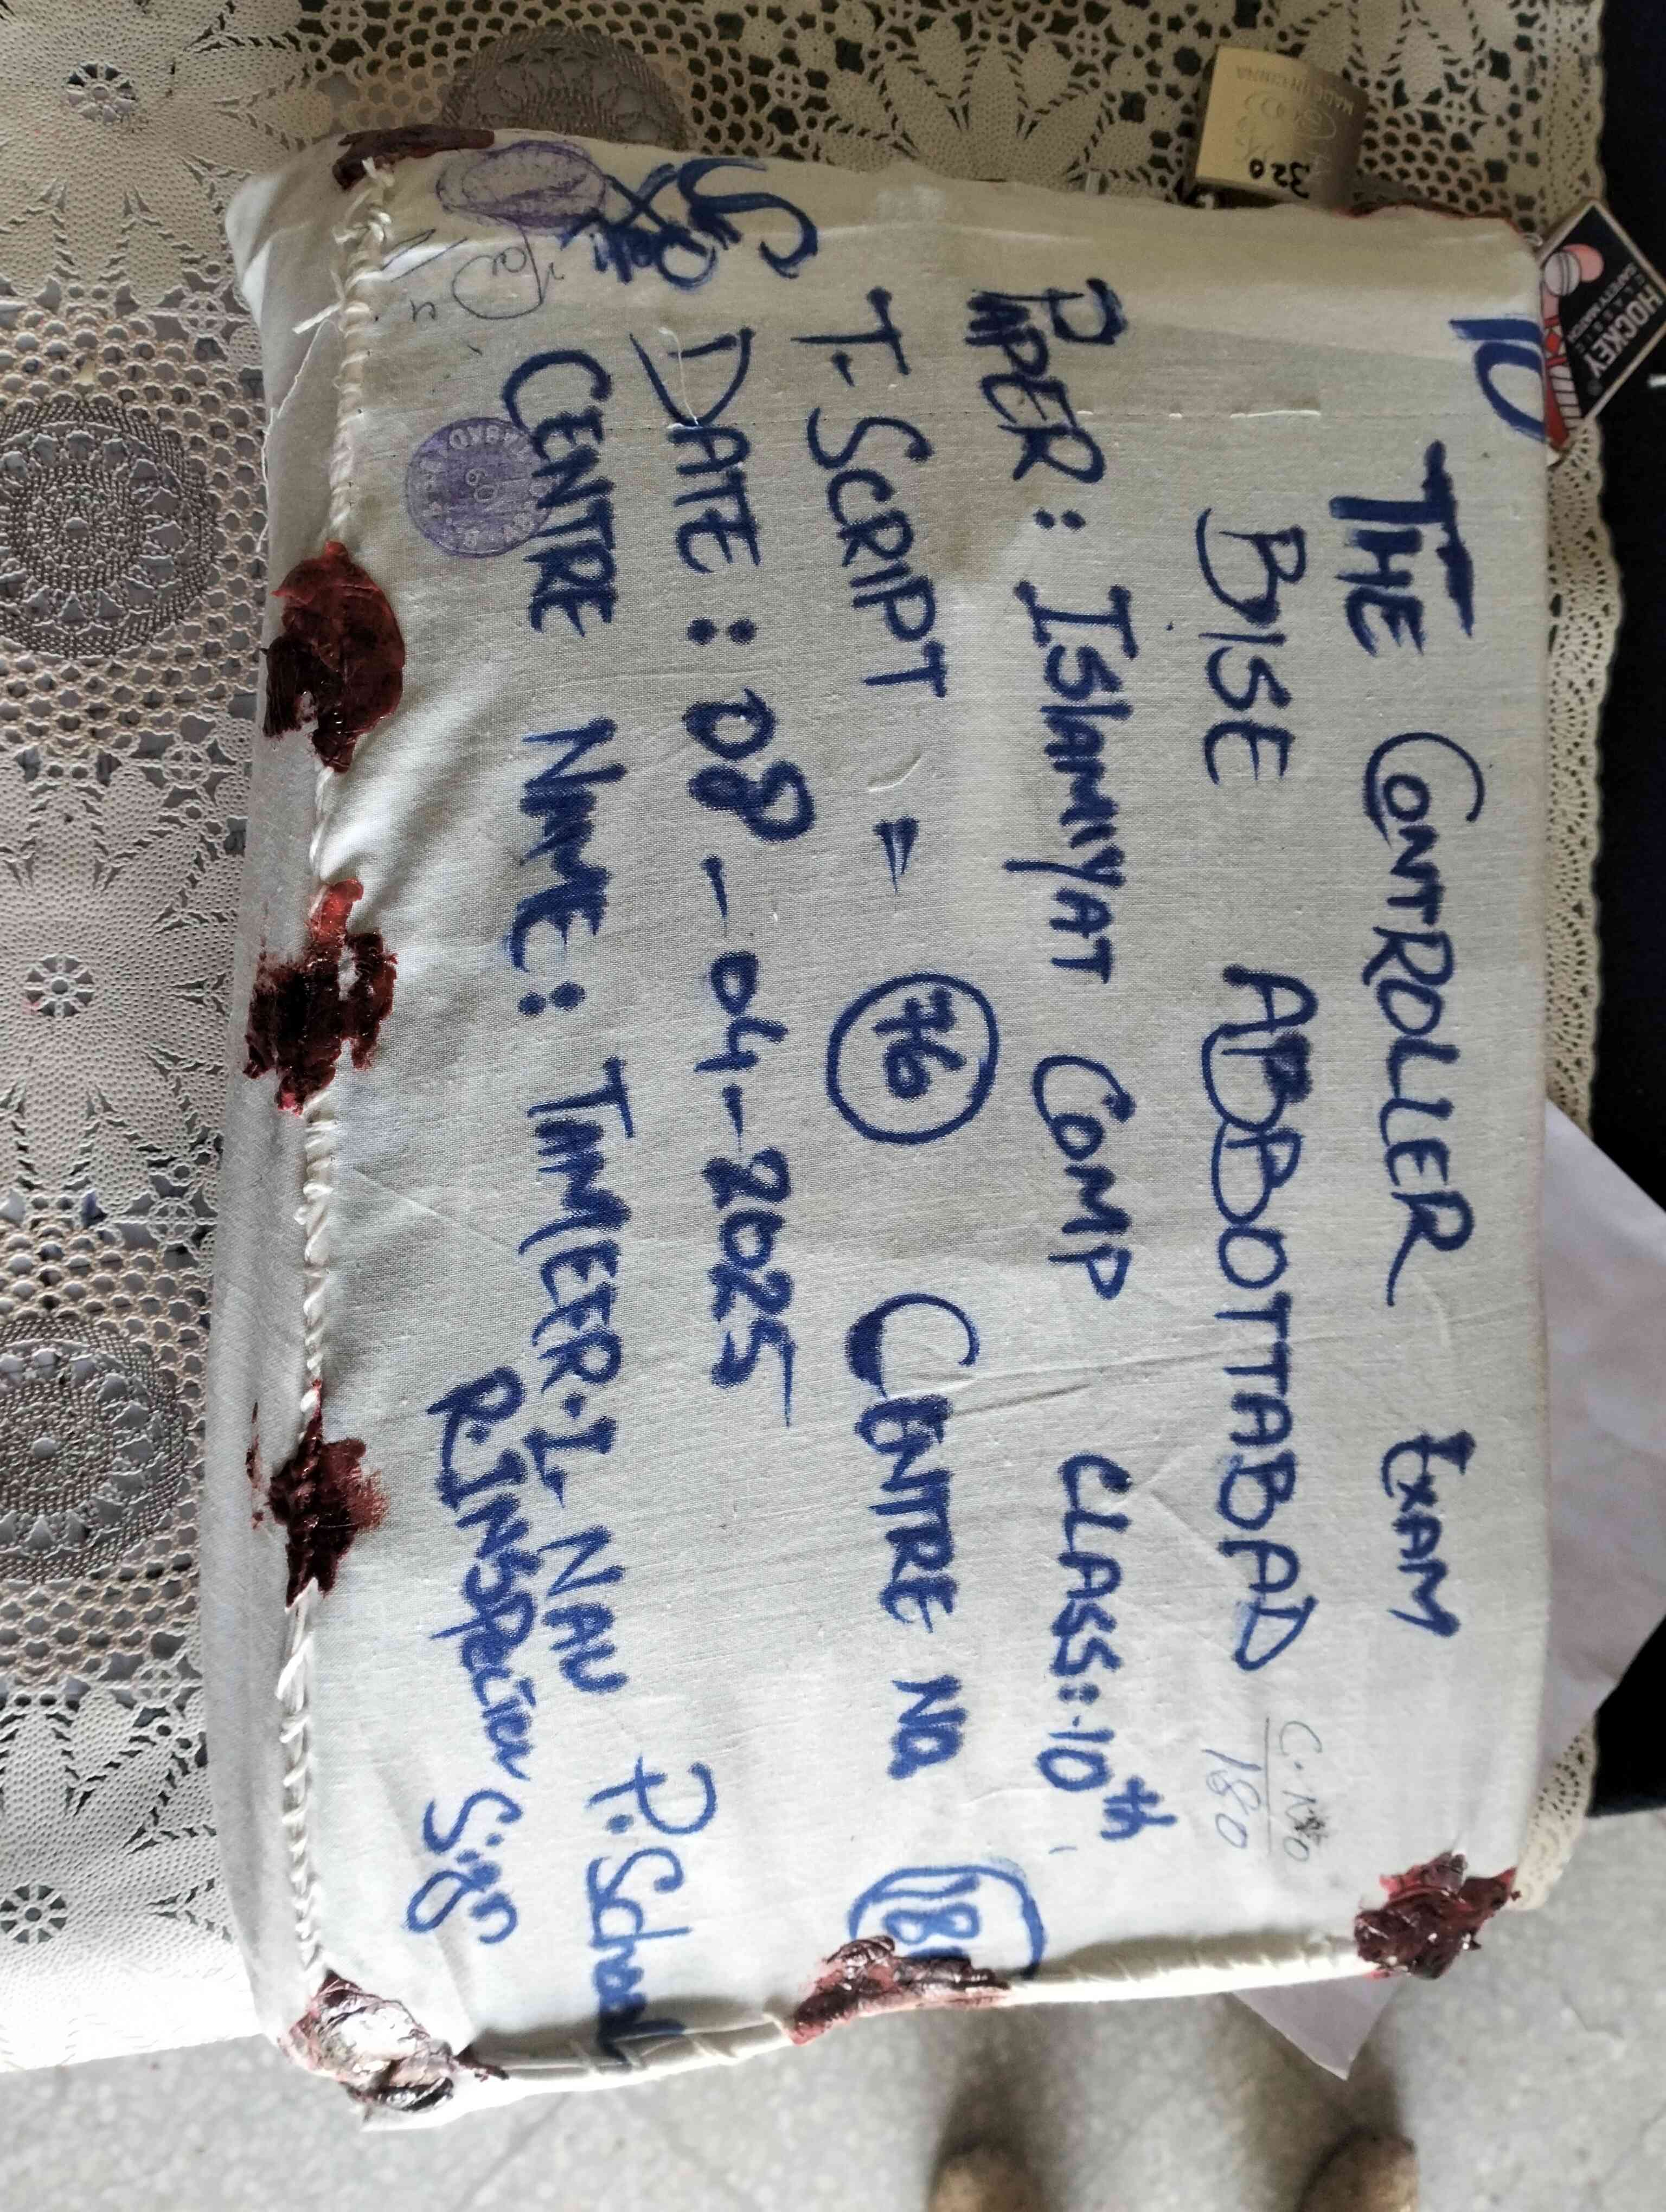 To
THE CONTROLLER EXAM
BISE ABBOTTABAD
C.No
180
PAPER: ISlAMIYAT COMP CLASS:-10th
T.SCRIPT = 76 CENTRE No 18
DATE: 08-04-2025
CENTRE NAME: TAMEER.I.NAU P.School
R.INSPECTOR Sign
320
MADE IN CHINA
HOCKEY